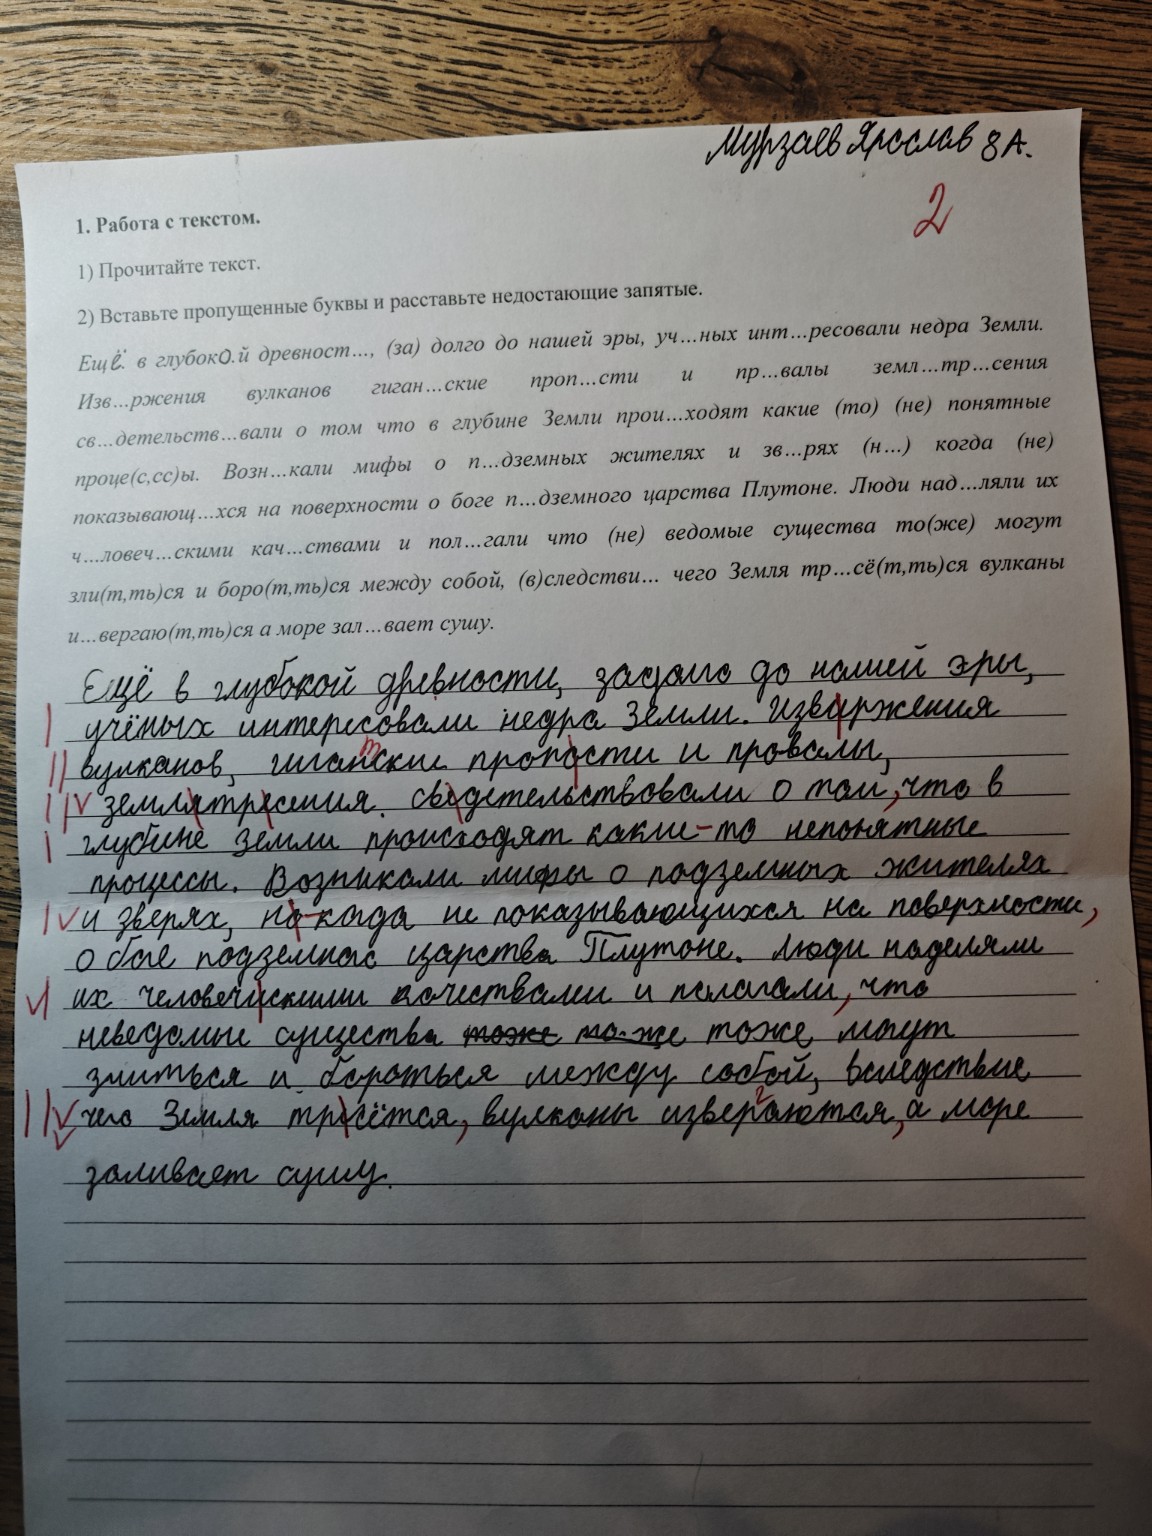 Мурзаев Ярослав 8 А.
2
1. Работа с текстом.
1) Прочитайте текст.
2) Вставьте пропущенные буквы и расставьте недостающие запятые.
Ещё. в глубокО.й древност..., (за) долго до нашей эры, уч...ных инт...ресовали недра Земли.
Изв...ржения вулканов гиган...ские проп...сти и пр...валы земл...тр...сения
св...детельств...вали о том что в глубине Земли прои...ходят какие (то) (не) понятные
проце(с,сс)ы. Возн...кали мифы о п...дземных жителях и зв...рях (н...) когда (не)
показывающ...хся на поверхности о боге п...дземного царства Плутоне. Люди над...ляли их
ч...ловеч...скими кач...ствами и пол...гали что (не) ведомые существа то(же) могут
зли(т,ть)ся и боро(т,ть)ся между собой, (в)следстви... чего Земля тр...сё(т,ть)ся вулканы
и...вергаю(т,ть)ся а море зал...вает сушу.
Ещё в глубокой древности, задолго до нашей эры,
учёных интересовали недра Земли. Изваржения
вулканов, гиганские пропости и провалы,
землятресения. свидетельствовали о том, что в
глубине Земли происходят какие-то непонятные
процессы. Возникали мифы о подземных жителях
и зверях, на-когда не показывающихся на поверхности,
о боге подземного царства Плутоне. Люди наделяли
их человечискими качествами и полагали, что
неведомые существа тоже то-же тоже могут
злиться и бороться между собой, вследствие
чего Земля тресётся, вулканы извергаются, а море
заливает сушу.